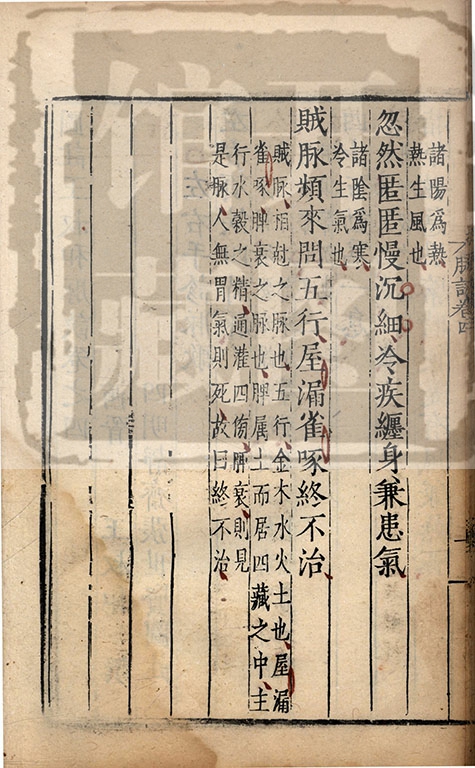 諸陽爲熱
熱生風也
忽然匿匿慢沉細冷疾纏身兼患氣
諸陰爲寒
冷生氣也
賊脉頻來問五行屋漏雀啄終不治
賊脉相尅之脉也五行金木水火土也屋漏
雀啄脾衰之脉也脾属土而居四藏之中主
行水榖之精通灌四傍脾衰則見
是脉人無胃氣則死故曰終不治
脉訣卷四